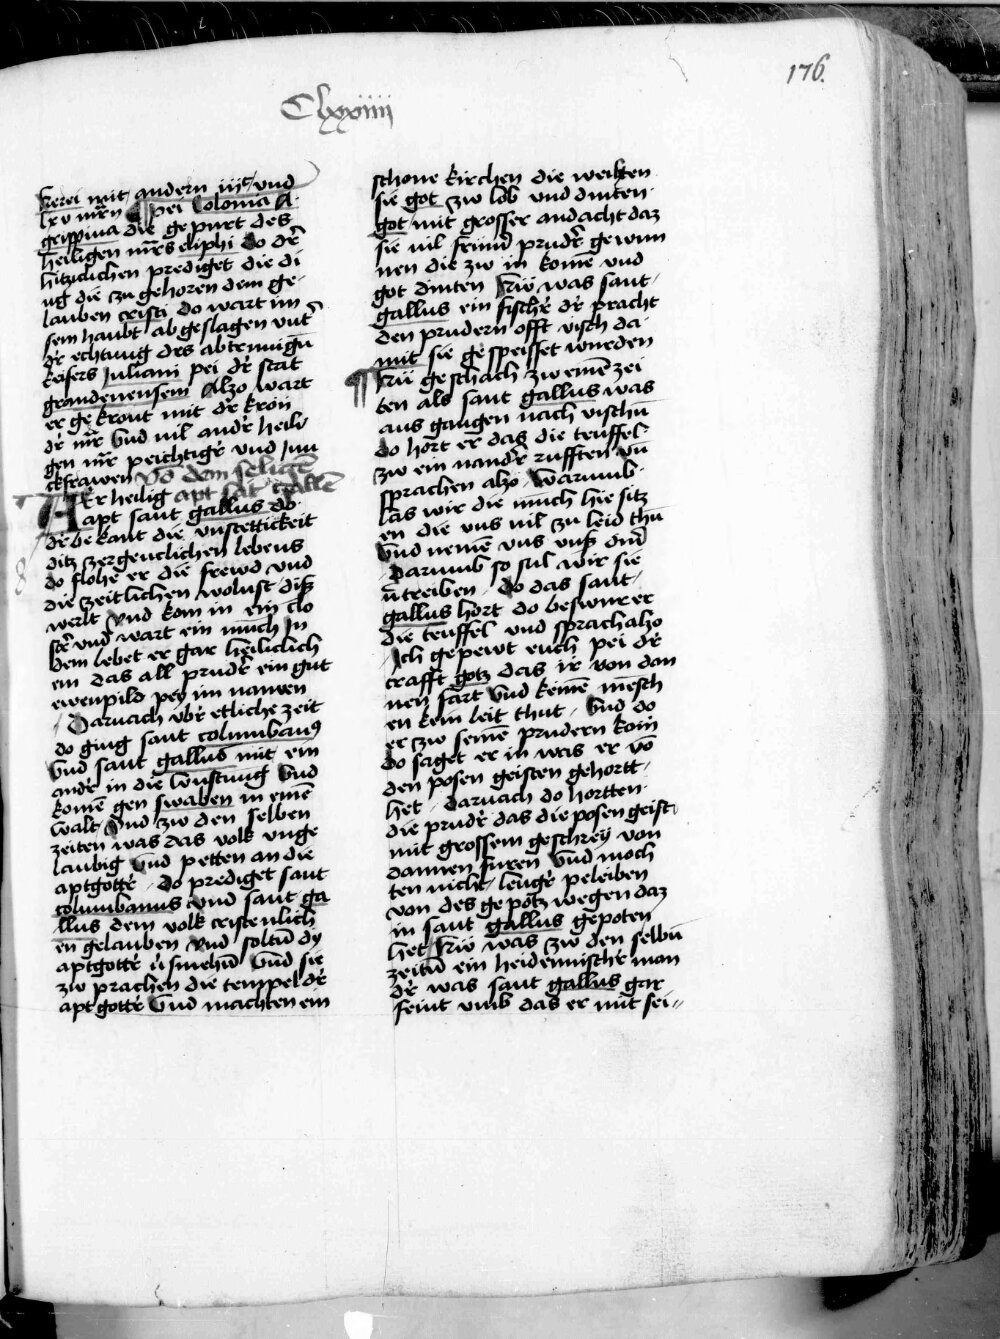 176.
Clxxiiii
kerei mit andern iijc vnd
lxv mrn Pei Colonia A
grippina die gepurt des
heiligen mrs eliphi do dr
hitziclichen prediget die di
ng die zu gehoren dem ge
lauben cristi do wart im
sein haubt abgeslagen vnt
dr echtung des abtrunign
keisers Juliani pei dr stat
grandenensem Alzo wart
er gekront mit dr kron
dr mr Vnd vil andr heili
gen mr peichtigr vnd Jun
ckfrawen Vō dem seligē
apt sāt Gallē
DEr heilig
apt sant gallus do
dr bekant die vnstettickeit
ditz zergenclichen lebens
do flohe er die frewd vnd
die zeitlichen wolust diß
werlt Vnd kom in ein clo
str vnd wart ein munch In
dem lebet er gar heiliclich
en das all prudr ein gut
ewenpild pey im namen
Darnach vbr etliche zeit
do ging sant columbanus
Vnd sant gallus mit ein
andr in die Wustung Vnd
komē gen swaben in einē
walt Vnd zw den selben
zeiten was das volk vnge
laubig Vnd petten an die
aptgottr Do prediget sant
columbanus Vnd sant ga
llus dem volk cristenlich
en gelauben Vnd soltn dy
aptgottr v̄smehn Vnd sie
zw prachen die tempel dr
aptgottr Vnd machten ein
schone kirchen die weihten
sie got zw lob vnd dinten
got mit grosser andacht daz
sie vil frund prudr gewun
nen die zw in komē vnd
got dinten Nw was sant
gallus ein fischr dr pracht
den prudern offt visch da
mit sie gespeisset wurden
¶ Nu geschach zw einē zei
ten als sant gallus was
aus gangen nach vischn
do hort er das die teuffel
zw ein nandr rufften vn
sprachen alzo Warumb
las wir die munch hie sitz
en die vns vil zu leid thu
Vnd nemē vns vnß
Darumb so sul wir sie
v̄treiben Do das sant
gallus hort do beswur er
die teuffel vnd sprach alzo
Ich gepewt euch pei dr
crafft gotz das ir von dan
nen fart Vnd keinē mēsch
en kein leit thut Vnd do
er zw seinē prudern kom
do saget er in was er vō
den posen geisten gehortt
het Darnach do hortten
die prudr das die posen geist
mit grossem geschrey von
dannen furen Vnd moch
ten nicht lengr peleiben
von des gepotz wegen daz
in sant gallus gepoten
het Nw was zw den selbn
zeitn ein heidennischr man
dr was sant gallus gar
feint vmb das er mit sei-